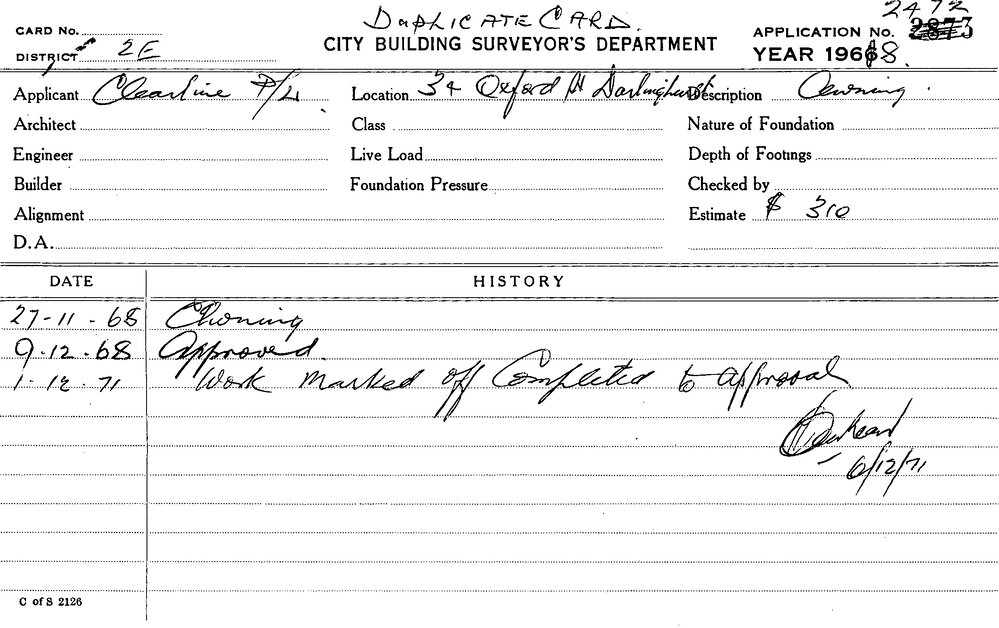 DUPLICATE CARD.
CARD No. CITY BUILDING SURVEYOR'S DEPARTMENT APPLICATION No. 2472 2873
DISTRICT 2E YEAR 1968.
Applicant Clearline P/L. Location 34 Oxford St Darlinghurst Description Awning.
Architect Class Nature of Foundation
Engineer Live Load Depth of Footings
Builder Foundation Pressure Checked by
Alignment Estimate $ 310
D.A.
DATE HISTORY
27-11-68 Awning
9.12.68 Approved.
1.12.71 Work marked off Completed to approval
6/12/71
C of S 2126